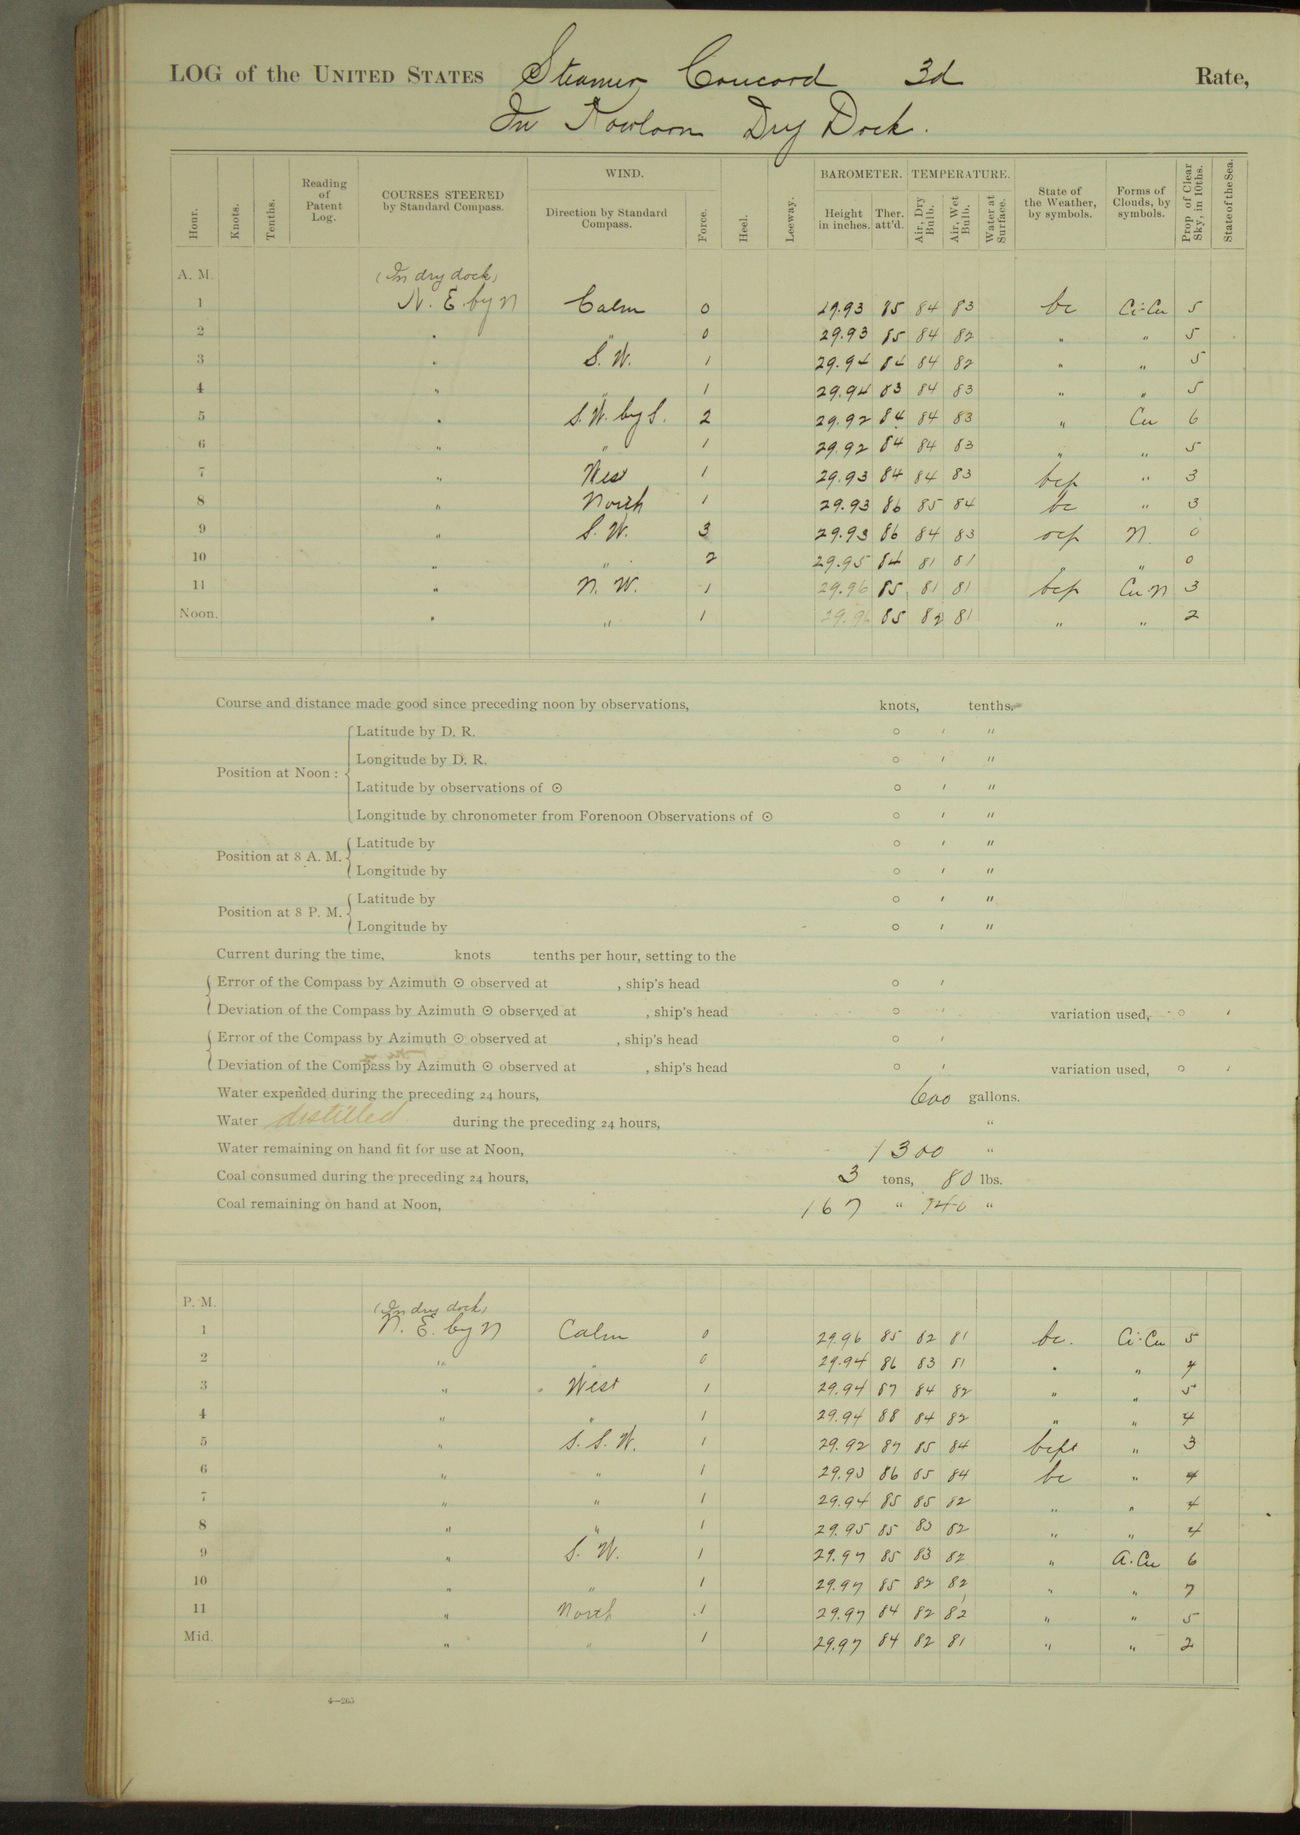 LOG of the UNITED STATES Steamer Concord 3d Rate,
In Kowloon Dry Dock.
Hour. Knots. Tenths. Reading of Patent Log. COURSES STEERED by Standard Compass. WIND. Direction by Standard Compass. Force. Heel. Leeway. BAROMETER. Height in inches. Ther. att'd. TEMPERATURE. Air, Dry Bulb. Air, Wet Bulb. Water at Surface. State of the Weather, by symbols. Forms of Clouds, by symbols. Prop. of Clear Sky, in 10ths. State of the Sea.
A. M. (In dry dock)
1 N. E. by N Calm 0 29.93 85 84 83 bc Ci-Cu 5
2 " " 0 29.93 85 84 82 " " 5
3 " S. W. 1 29.94 84 84 82 " " 5
4 " " 1 29.94 83 84 83 " " 5
5 " S. W. by S. 2 29.92 84 84 83 " Cu 6
6 " " 1 29.92 84 84 83 " " 5
7 " West 1 29.93 84 84 83 bcp " 3
8 " North 1 29.93 86 85 84 bc " 3
9 " S. W. 3 29.93 86 84 83 ocp N. 0
10 " " 2 29.95 84 81 81 " " 0
11 " N. W. 1 29.96 85 81 81 bcp Cu-N 3
Noon. " " 1 29.96 85 82 81 " " 2
Course and distance made good since preceding noon by observations, knots, tenths.
Position at Noon: Latitude by D. R. ° ′ ″
Longitude by D. R. ° ′ ″
Latitude by observations of ☉ ° ′ ″
Longitude by chronometer from Forenoon Observations of ☉ ° ′ ″
Position at 8 A. M. Latitude by ° ′ ″
Longitude by ° ′ ″
Position at 8 P. M. Latitude by ° ′ ″
Longitude by ° ′ ″
Current during the time, knots tenths per hour, setting to the
Error of the Compass by Azimuth ☉ observed at , ship's head ° ′
Deviation of the Compass by Azimuth ☉ observed at , ship's head ° ′ variation used, ° ′
Error of the Compass by Azimuth ☉ observed at , ship's head ° ′
Deviation of the Compass by Azimuth ☉ observed at , ship's head ° ′ variation used, ° ′
Water expended during the preceding 24 hours, 600 gallons.
Water distilled during the preceding 24 hours, "
Water remaining on hand fit for use at Noon, 1300 "
Coal consumed during the preceding 24 hours, 3 tons, 80 lbs.
Coal remaining on hand at Noon, 167 " 740 "
P. M. (In dry dock)
1 N. E. by N Calm 0 29.96 85 82 81 bc. Ci-Cu 5
2 " " 0 29.94 86 83 81 " " 4
3 " West 1 29.94 87 84 82 " " 5
4 " " 1 29.94 88 84 82 " " 4
5 " S. S. W. 1 29.92 87 85 84 bcpt " 3
6 " " 1 29.93 86 85 84 bc " 4
7 " " 1 29.94 85 85 82 " " 4
8 " " 1 29.95 85 83 82 " " 4
9 " S. W. 1 29.97 85 83 82 " A-Cu 6
10 " " 1 29.97 85 82 82 " " 7
11 " North 1 29.97 84 82 82 " " 5
Mid. " " 1 29.97 84 82 81 " " 2
4—265